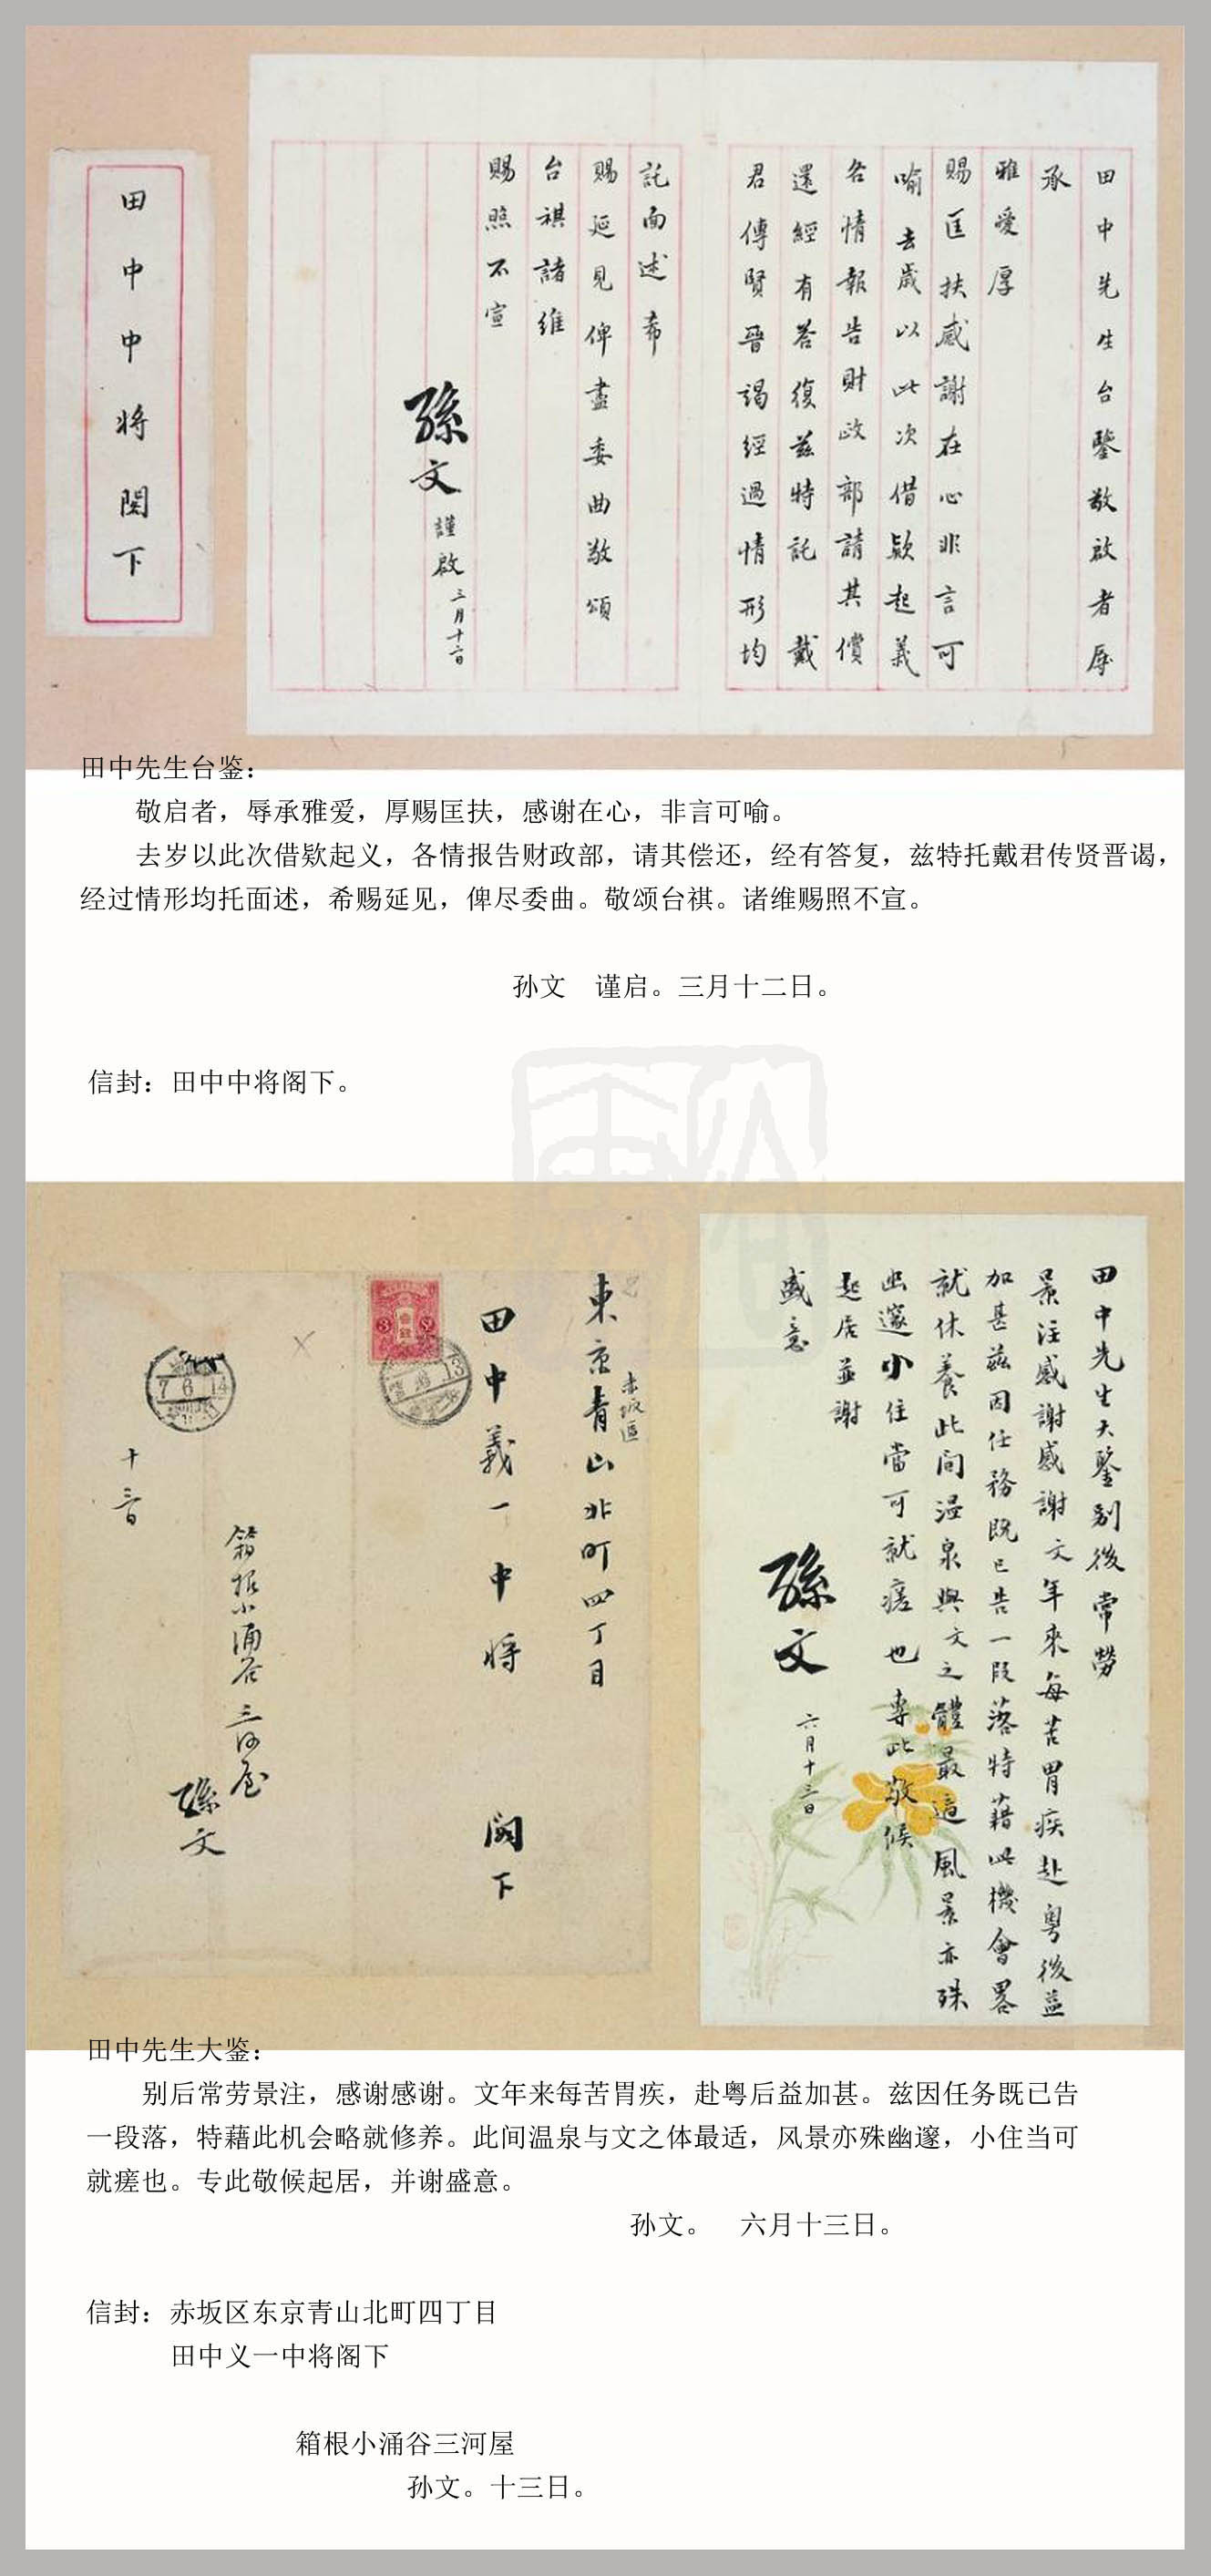 田中先生台鑒敬啟者辱
承
雅愛厚
賜匡扶感謝在心非言可
喻去歲以此次借欵起義
各情報告財政部請其償
還經有答復茲特託戴
君傳賢晉謁經過情形均
託面述希
賜延見俾盡委曲敬頌
台祺諸維
賜照不宣
孫文謹啟三月十二日
田中中將閣下
田中先生台鉴：
敬启者，辱承雅爱，厚赐匡扶，感谢在心，非言可喻。
去岁以此次借欵起义，各情报告财政部，请其偿还，经有答复，兹特托戴君传贤晋谒，
经过情形均托面述，希赐延见，俾尽委曲。敬颂台祺。诸维赐照不宣。
孙文 谨启。三月十二日。
信封：田中中将阁下。
田中先生大鑒別後常勞
景注感謝感謝文年來每苦胃疾赴粵後益
加甚茲因任務既已告一段落特藉此機會畧
就休養此間溫泉與文之體最適風景亦殊
幽邃小住當可就瘥也專此敬候
起居並謝
盛意
孫文
六月十三日
赤坂區
東京青山北町四丁目
田中義一中將閣下
3
13
7 6 14
箱根小涌谷三河屋
孫文
十三日
田中先生大鉴：
别后常劳景注，感谢感谢。文年来每苦胃疾，赴粤后益加甚。兹因任务既已告
一段落，特藉此机会略就修养。此间温泉与文之体最适，风景亦殊幽邃，小住当可
就瘥也。专此敬候起居，并谢盛意。
孙文。 六月十三日。
信封：赤坂区东京青山北町四丁目
田中义一中将阁下
箱根小涌谷三河屋
孙文。十三日。